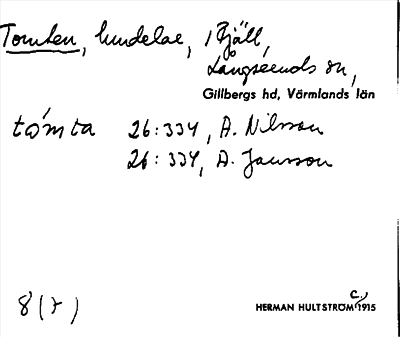 Tomten, lundelar, i Fjäll,
Långseruds sn,
Gillbergs hd, Värmlands län
tómta 26:334, A. Nilsson
26:334, A. Jansson
8(7)
HERMAN HULTSTRÖM c., 1915